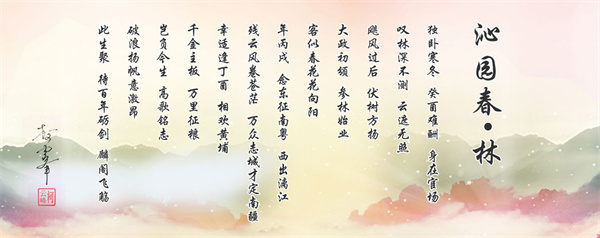 沁园春•林
独卧寒冬 癸酉难酬 身在官场
叹林深不测 云遮无照
飓风过后 伏树方扬
大政初颁 参林始业
容似春花花向阳
年丙戌 念东征南粤 西出漓江
残云风卷苍茫 万众志城才定南疆
幸适逢丁酉 相欢黄埔
千金主板 万里征粮
岂负今生 高歌铭志
破浪扬帆意激昂
此生聚 待百年砺剑 麟阁飞觞